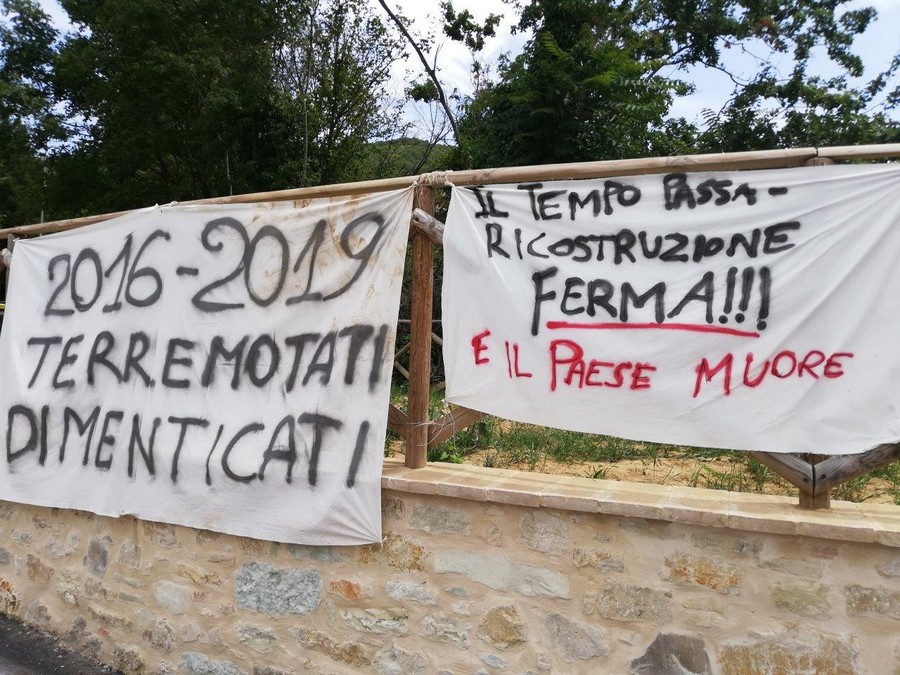 2016-2019
TERREMOTATI
DIMENTICATI
IL TEMPO PASSA-
RICOSTRUZIONE
FERMA!!!
E IL PAESE MUORE